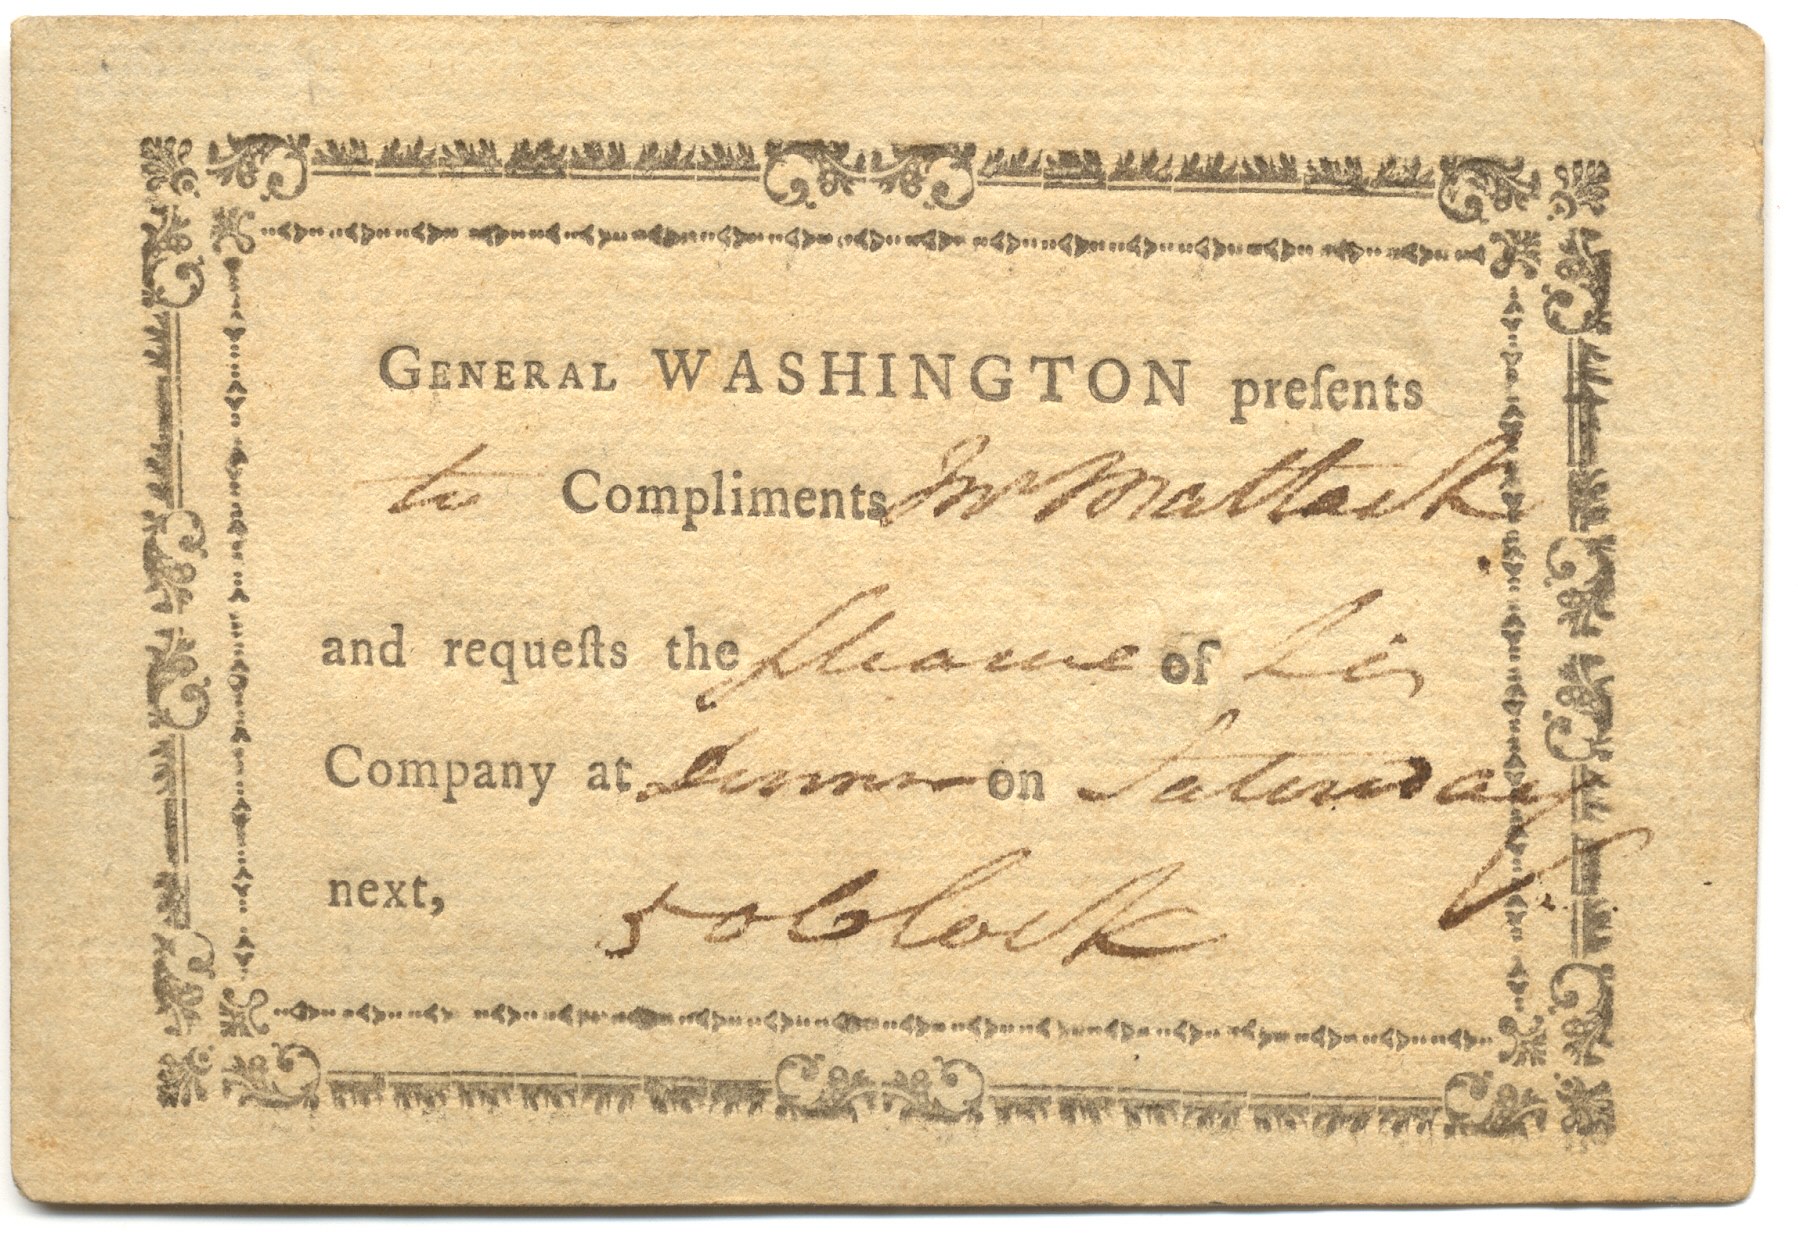 GENERAL WASHINGTON preſents
to Compliments Mr Mattack
and requeſts the pleasure of his
Company at Dinner on Saturday
next, 5 oClock